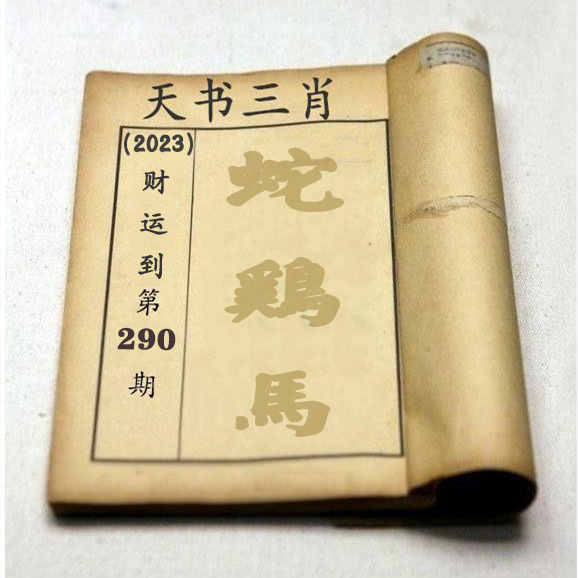 天书三肖
(2023)
财
运
到
第
290
期
蛇
鷄
馬